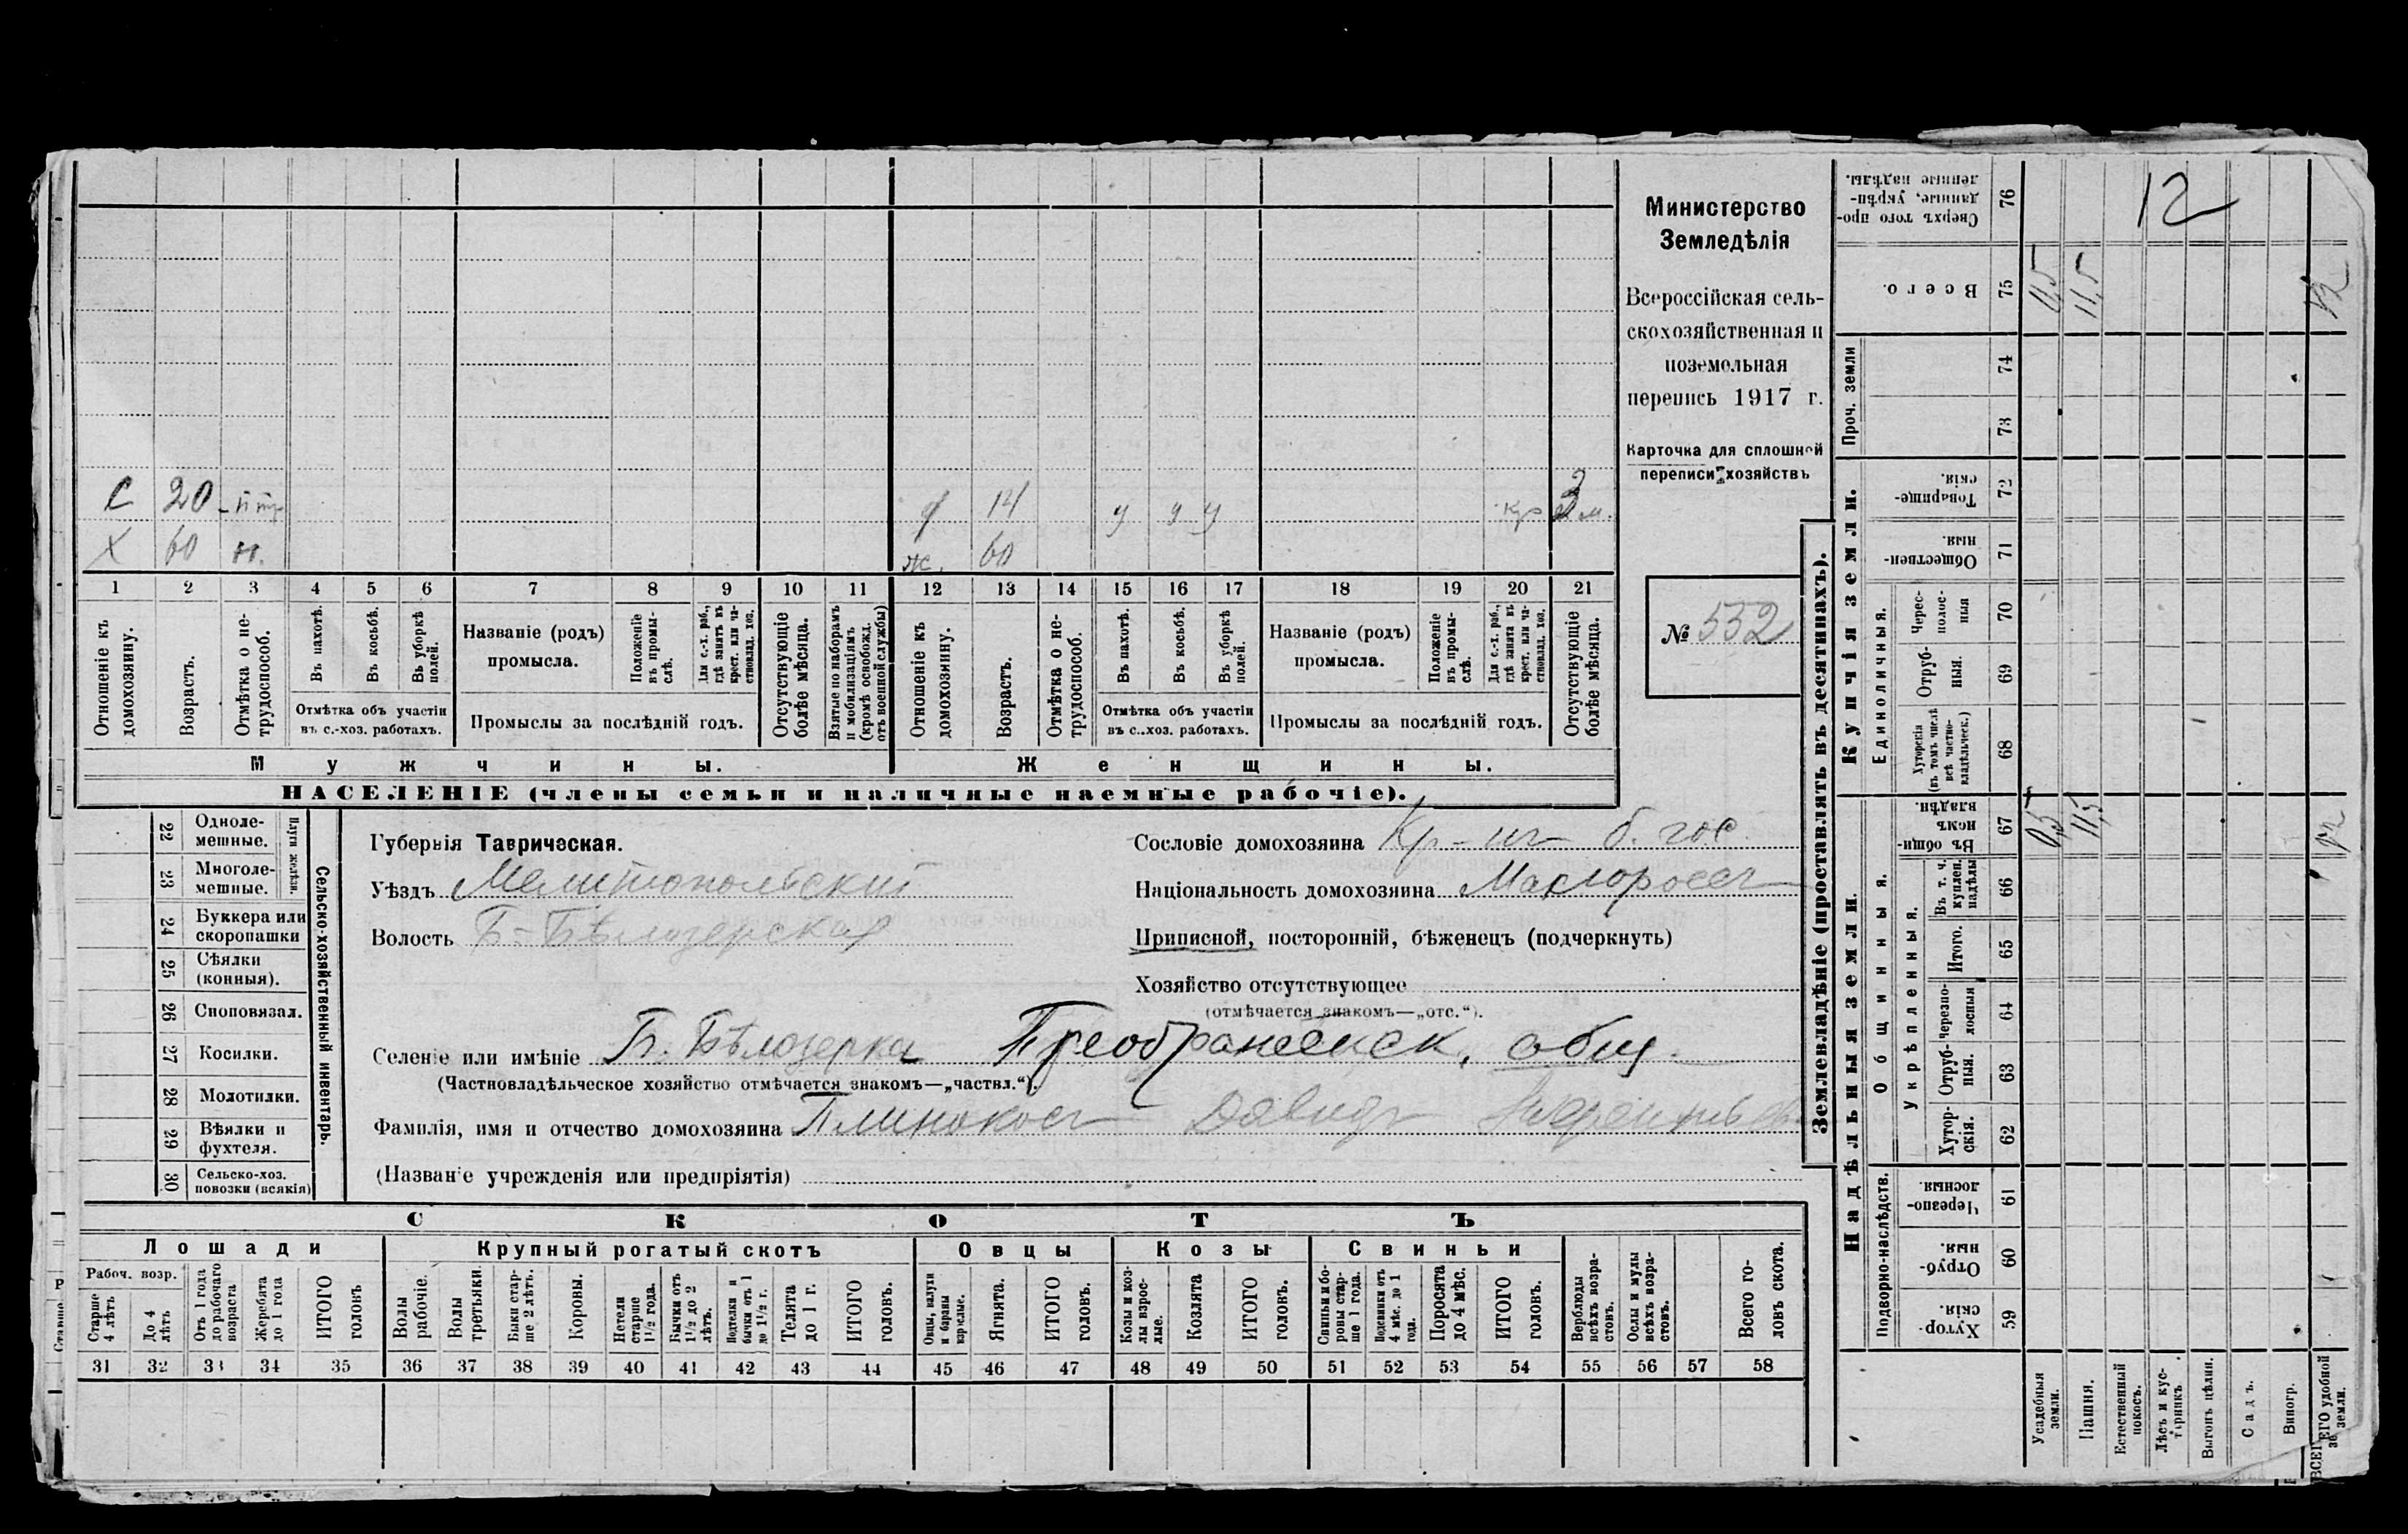 Министерство
Земледѣлія
Всероссійская сель-
скохозяйственная и
поземельная
перепись 1917 г.
Карточка для сплошной
переписи хозяйствъ
№ 532
С 20 14 У У У Кр 3 м.
Х 60 н. ж. 60
1 2 3 4 5 6 7 8 9 10 11 12 13 14 15 16 17 18 19 20 21
Отношеніе къ домохозяину.
Возрастъ.
Отмѣтка о не-трудоспособ.
Въ пахотѣ.
Въ косьбѣ.
Въ уборкѣ полей.
Отмѣтка объ участіи
въ с.-хоз. работахъ.
Названіе (родъ)
промысла.
Положеніе въ промы-слѣ.
Для с.-х. раб., гдѣ занятъ въ крест. или ча-стновлад. хоз.
Промыслы за послѣдній годъ.
Отсутствующіе болѣе мѣсяца.
Взятые по наборамъ и мобилизаціямъ (кромѣ освобожд. отъ военной службы)
Отношеніе къ домохозяину.
Возрастъ.
Отмѣтка о не-трудоспособ.
Въ пахотѣ.
Въ косьбѣ.
Въ уборкѣ полей.
Отмѣтка объ участіи
въ с..хоз. работахъ.
Названіе (родъ)
промысла.
Положеніе въ промы-слѣ.
Для с.-х. раб., гдѣ занята въ крест. или ча-стновлад. хоз.
Промыслы за послѣдній годъ.
Отсутствующіе болѣе мѣсяца.
Мужчины. Женщины.
НАСЕЛЕНІЕ (члены семьи и наличные наемные рабочіе).
22 Одноле-мешные.
23 Многоле-мешные.
Плуги желѣзн.
24 Буккера или скоропашки
25 Сѣялки (конныя).
26 Сноповязал.
27 Косилки.
28 Молотилки.
29 Вѣялки и фухтеля.
30 Сельско-хоз. повозки (всякія)
Сельско-хозяйственный инвентарь.
Губернія Таврическая.
Уѣздъ Мелитопольский
Волость Б-Бѣлозерская
Сословіе домохозяина Кр-нъ б. гос
Національность домохозяина Малоросс
Приписной, посторонній, бѣженецъ (подчеркнуть)
Хозяйство отсутствующее
(отмѣчается знакомъ—„отс.“).
Селеніе или имѣніе Б. Бѣлозерка Преображенск. общ.
(Частновладѣльческое хозяйство отмѣчается знакомъ—„частвл.“).
Фамилія, имя и отчество домохозяина Давидъ
(Названіе учрежденія или предпріятія)
СКОТЪ
Лошади Крупный рогатый скотъ Овцы Козы Свиньи
Рабоч. возр.
Старше 4 лѣтъ
До 4 лѣтъ
Отъ 1 года до рабочаго возраста
Жеребята до 1 года
ИТОГО головъ
Волы рабочіе.
Волы третьяки.
Быки стар-ше 2 лѣтъ.
Коровы.
Нетели старше 1½ года.
Бычки отъ 1½ до 2 лѣтъ.
Подтелки и бычки отъ 1 до 1½ г.
Телята до 1 г.
ИТОГО головъ.
Овцы, валухи и бараны взрослые.
Ягнята.
ИТОГО головъ.
Козы и коз-лы взрос-лые.
Козлята
ИТОГО головъ.
Свиньи и бо-ровы стар-ше 1 года.
Подсвинки отъ 4 мѣс. до 1 года.
Поросята до 4 мѣс.
ИТОГО головъ.
Верблюды всѣхъ возра-стовъ.
Ослы и мулы всѣхъ возра-стовъ.
Всего го-ловъ скота.
31 32 33 34 35 36 37 38 39 40 41 42 43 44 45 46 47 48 49 50 51 52 53 54 55 56 57 58
Землевладѣніе (проставлять въ десятинахъ).
Надѣльныя земли. Купчія земли. Проч. земли
Подворно-наслѣдств. Общинныя. Укрѣпленныя. Единоличныя.
Сверхъ того про-данные, укрѣп-ленные надѣлы. 76 12
Всего. 75 0,5 11,5 12
74
73
Товарище-скія. 72
Обществен-ныя. 71
Черес-полос-ныя 70
Отруб-ныя. 69
Хуторскія (въ томъ числѣ всѣ частно-владѣльческ.) 68
Въ общин-номъ владѣн. 67 0,5 11,5 12
Въ т. ч. куплен. надѣлы 66
Итого. 65
Черезпо-лосныя 64
Отруб-ныя. 63
Хутор-скія. 62
Черезпо-лосныя. 61
Отруб-ныя. 60
Хутор-скія. 59
Усадебныя земли.
Пашня.
Естественный покосъ.
Лѣсъ и кус-тарникъ.
Выгонъ цѣлин.
Садъ.
Виногр.
ВСЕГО удобной земли.